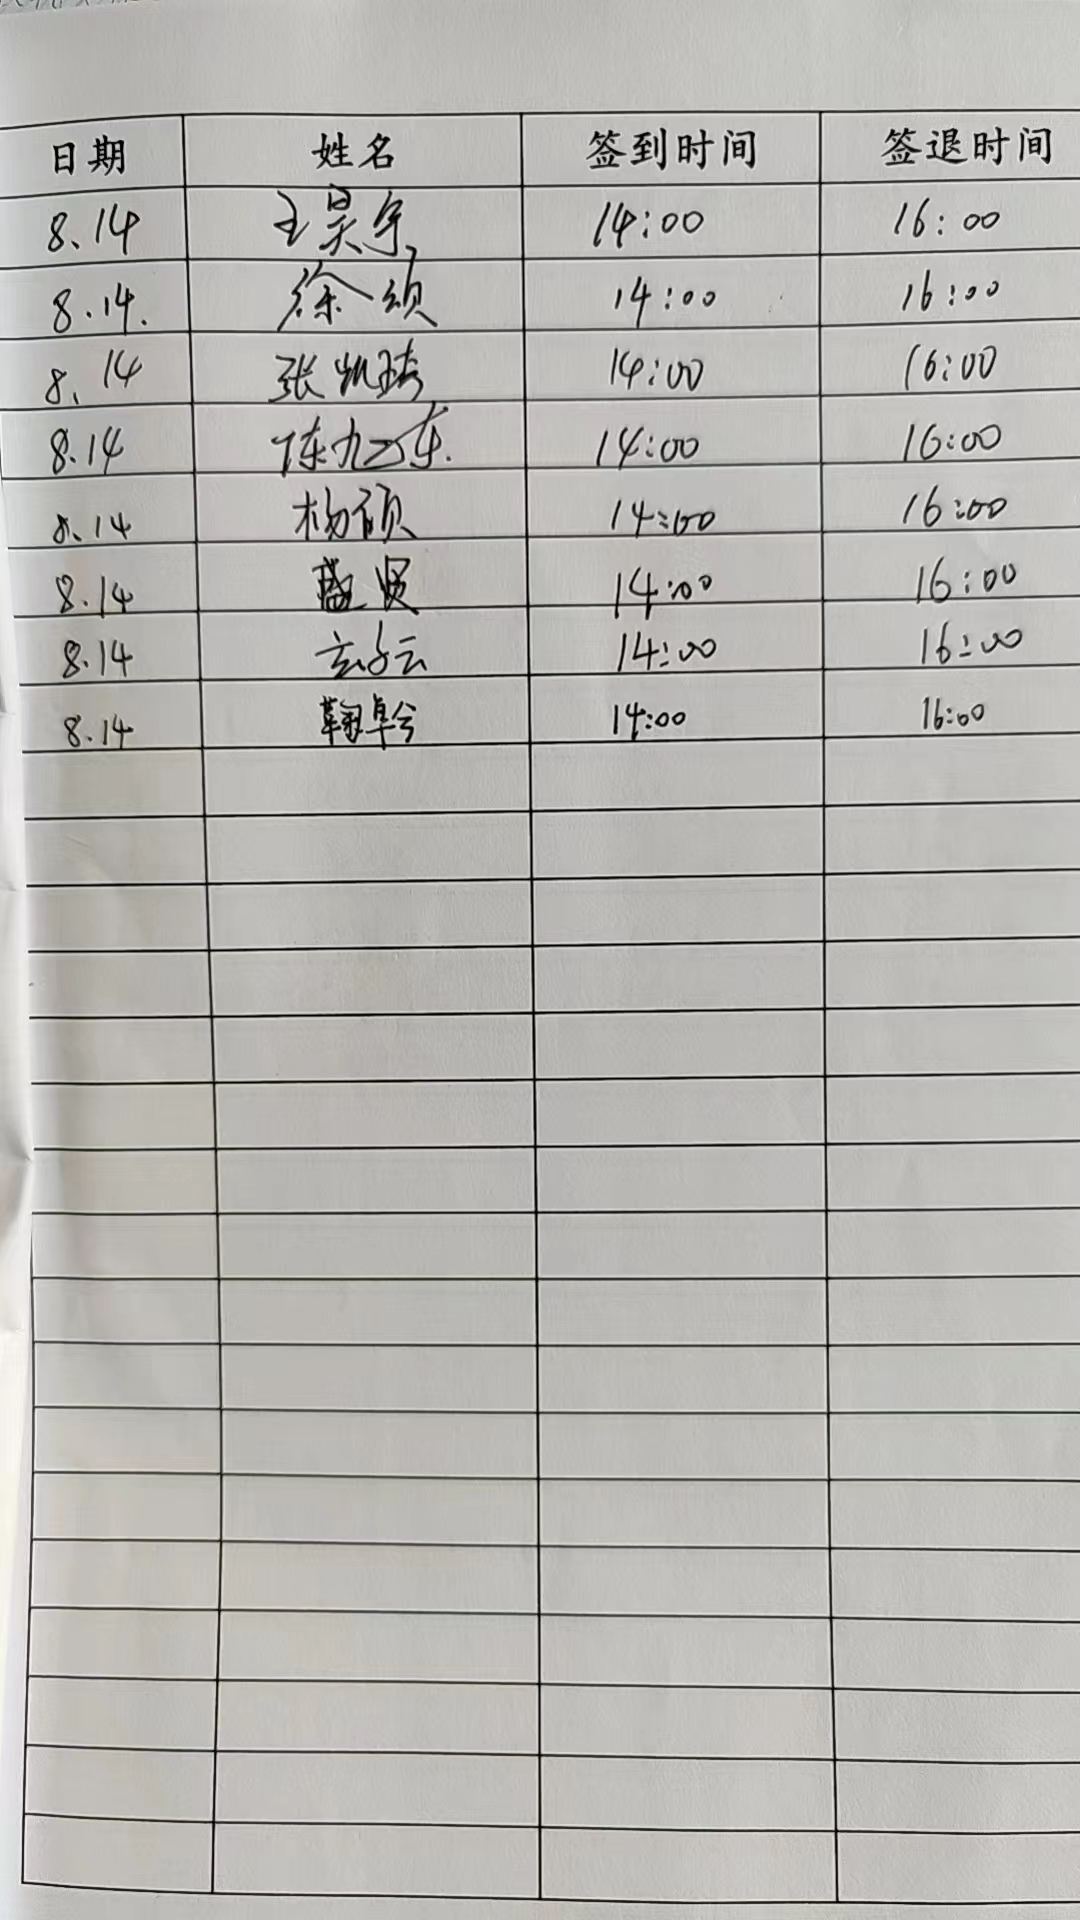 日期 姓名 签到时间 签退时间
8.14 王昊宇 14:00 16:00
8.14. 徐颂 14:00 16:00
8.14 张凯琦 14:00 16:00
8.14 陈九云东. 14:00 16:00
8.14 杨硕 14:00 16:00
8.14 盛贤 14:00 16:00
8.14 玄子云 14:00 16:00
8.14 鞠卓兮 14:00 16:00